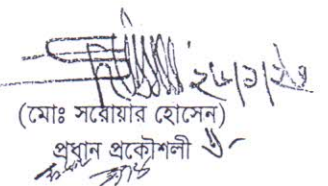 ২৮/১/২৩
(মোঃ সরোয়ার হোসেন)
প্রধান প্রকৌশলী